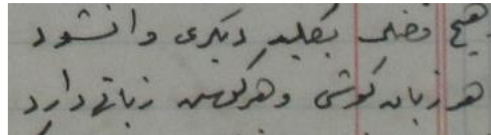 هیچ قفلی بکلید دیگری وا نشود
هر زبان گوشی و هر گوش زبانی دارد